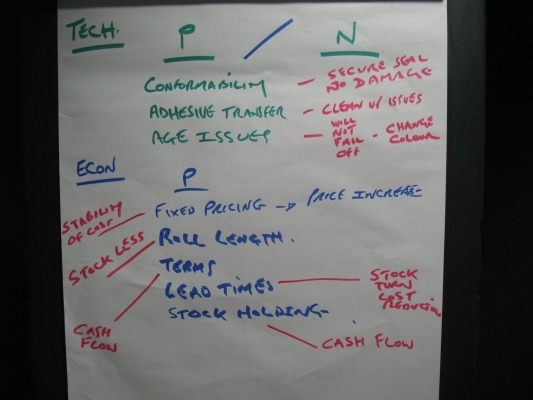 TECH. P / N
CONFORMABILITY - SECURE SEAL
NO DAMAGE
ADHESIVE TRANSFER - CLEAN UP ISSUES
AGE ISSUES - WILL
NOT
FALL
OFF
- CHANGE
COLOUR
ECON P
STABILITY
OF COST
FIXED PRICING → PRICE INCREASE
STOCK LESS
ROLL LENGTH.
TERMS
LEAD TIMES
STOCK
TURN
COST
REDUCTION
STOCK HOLDING
CASH
FLOW
CASH FLOW